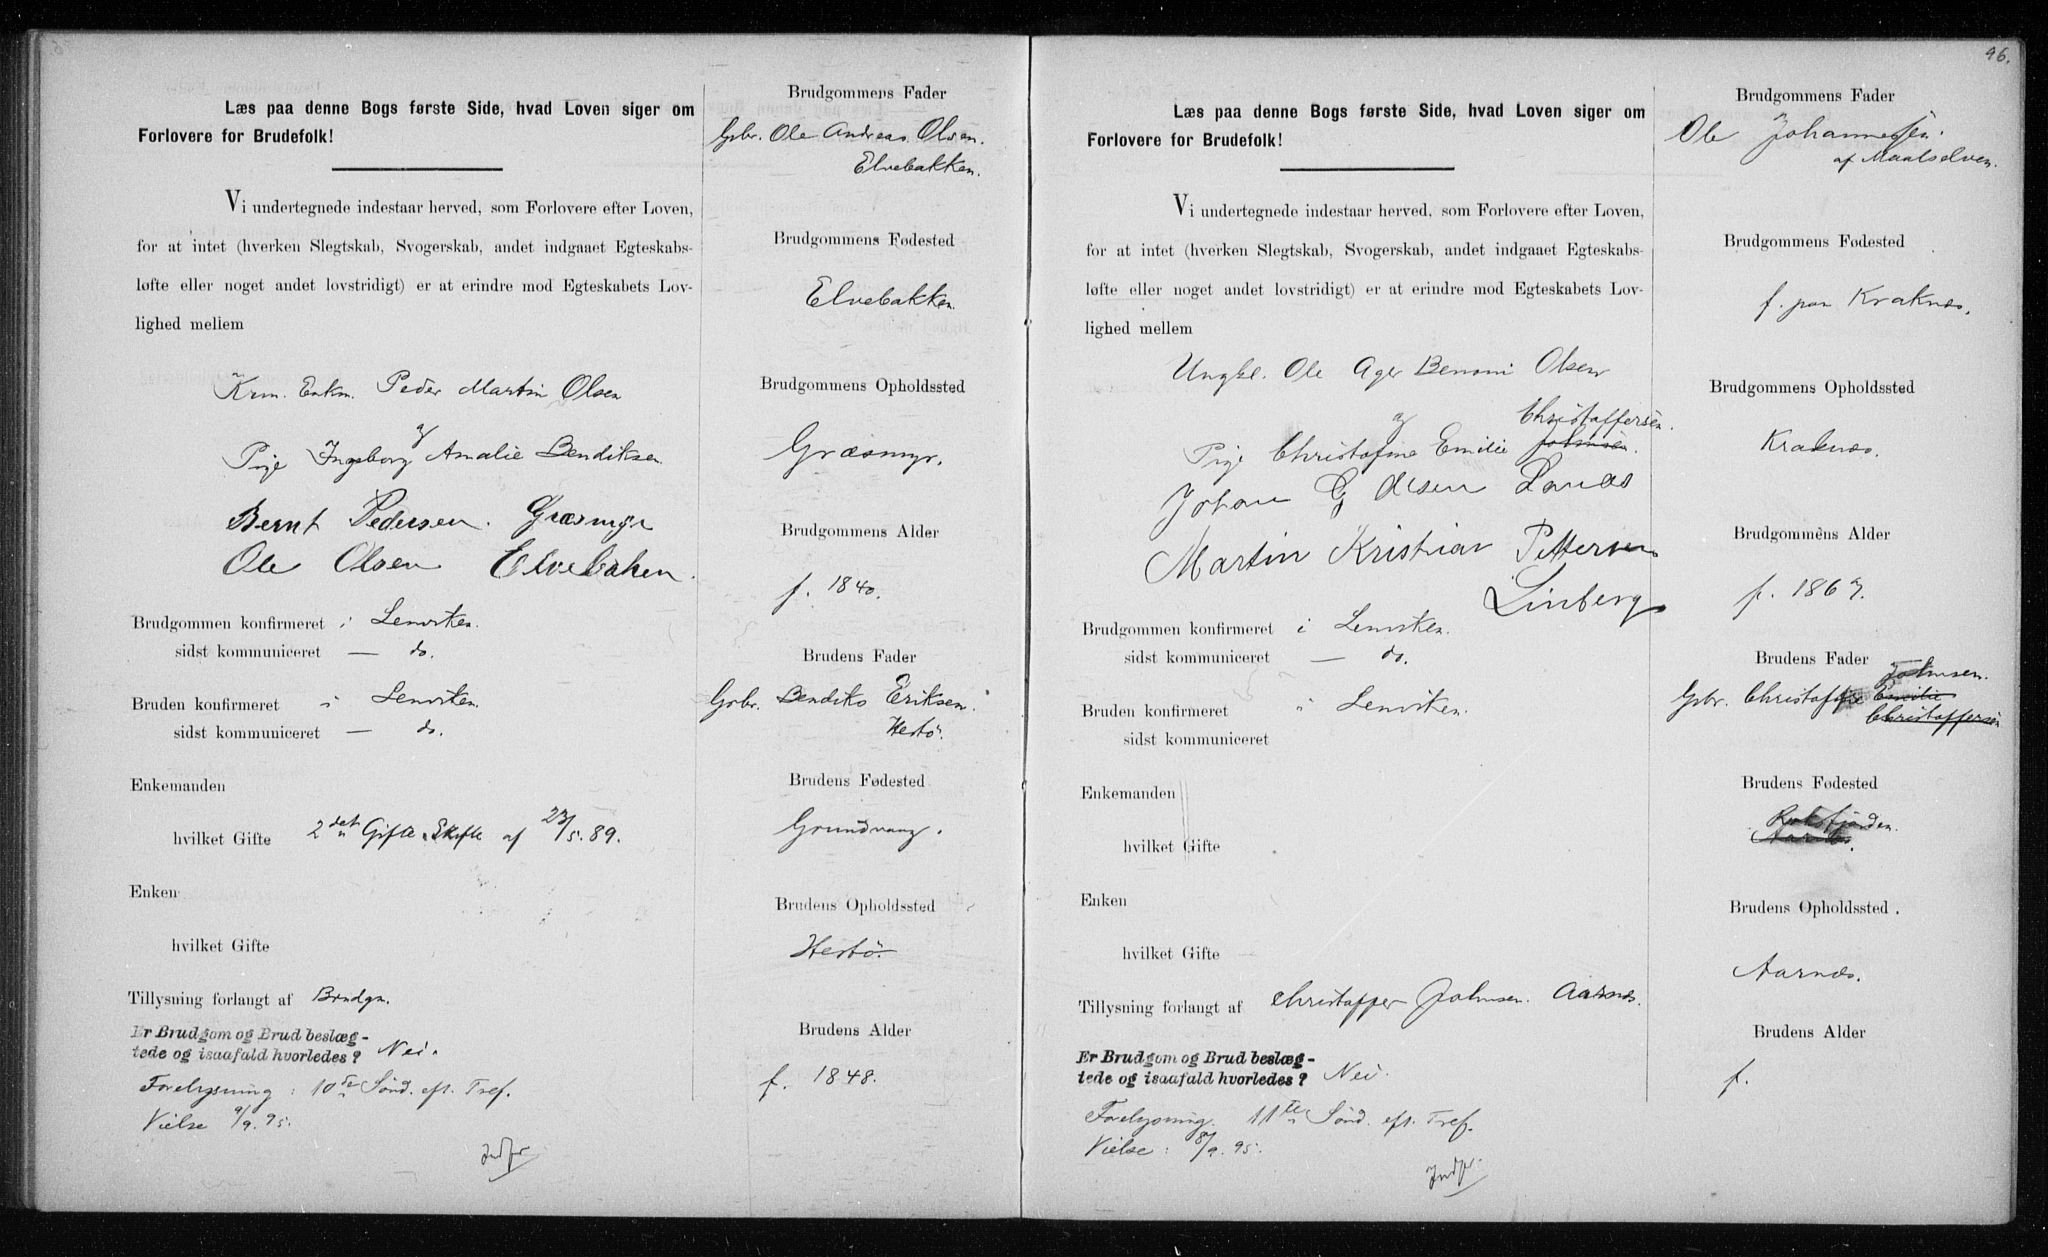 Læs paa denne Bogs første Side, hvad Loven siger om
Forlovere for Brudefolk!
Vi undertegnede indestaar herved, som Forlovere efter Loven,
for at intet (hverken Slegtskab, Svogerskab, andet indgaaet Egteskabs-
løfte eller noget andet lovstridigt) er at erindre mod Egteskabets Lov-
lighed mellem
Krm. Enkm. Peder Martin Olsen
og
Pige Ingeborg Amalie Bendiksen
Bernt Pedersen. Græsmyr
Ole Olsen Elvebaken.
Brudgommen konfirmeret i Lenviken.
sidst kommuniceret — do.
Bruden konfirmeret i Lenviken.
sidst kommuniceret — do.
Enkemanden
hvilket Gifte 2det Gifte. Skifte af 23/5.89.
Enken
hvilket Gifte
Tillysning forlangt af Brudgm.
Er Brudgom og Brud beslæg-
tede og isaafald hvorledes? Nei.
Forelysning: 10de Sönd. eft. Tref.
Vielse 9/9.95.
Indfr
Brudgommens Fader
Gbr. Ole Andreas Olsen.
Elvebakken.
Brudgommens Fødested
Elvebakken.
Brudgommens Opholdssted
Græsmyr.
Brudgommens Alder
f. 1840.
Brudens Fader
Gbr. Bendiks Eriksen.
Hestö.
Brudens Fødested
Grundvang.
Brudens Opholdssted
Hestö.
Brudens Alder
f. 1848.
96.
Læs paa denne Bogs første Side, hvad Loven siger om
Forlovere for Brudefolk!
Vi undertegnede indestaar herved, som Forlovere efter Loven,
for at intet (hverken Slegtskab, Svogerskab, andet indgaaet Egteskabs-
løfte eller noget andet lovstridigt) er at erindre mod Egteskabets Lov-
lighed mellem
Ungkl. Ole Ager Benoni Olsen
og
Christoffersen.
Pige Christofine Emilie Johnsen.
Johan G Olsen Lanes
Martin Kristian Pettersen
Linberg
Brudgommen konfirmeret i Lenviken.
sidst kommuniceret — do.
Bruden konfirmeret i Lenviken.
sidst kommuniceret
Enkemanden
hvilket Gifte
Enken
hvilket Gifte
Tillysning forlangt af Christoffer Johnsen. Aarnæs.
Er Brudgom og Brud beslæg-
tede og isaafald hvorledes? Nei.
Forelysning. 11te Sönd. eft. Tref.
Vielse: 8/9.95.
Indfr.
Brudgommens Fader
Ole Johannesen.
af Maalselven.
Brudgommens Fødested
f. paa Kraknæs.
Brudgommens Opholdssted
Kraknæs.
Brudgommens Alder
f. 1867.
Brudens Fader
Johnsen.
Gbr. Christoffer Emilie
Christoffersen
Brudens Fødested
Aarnæs.
Brudens Opholdssted.
Aarnæs.
Brudens Alder
f.